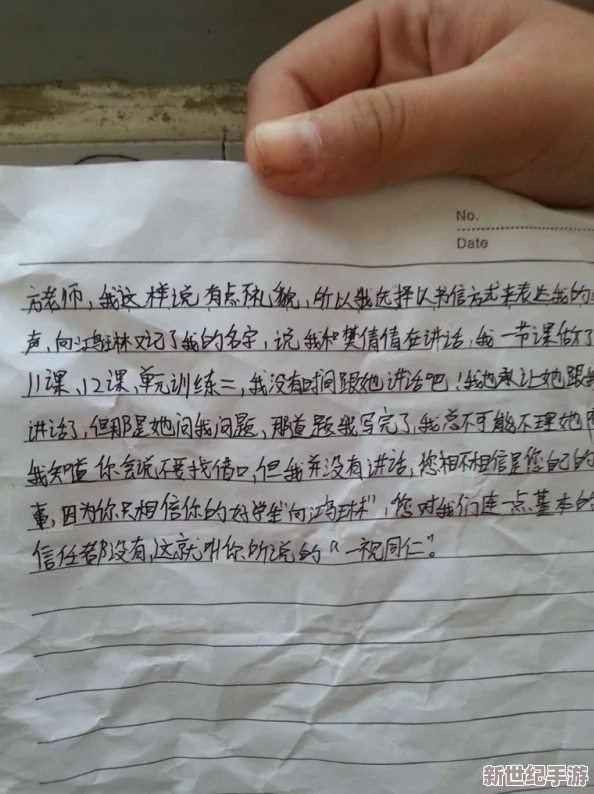 No.
Date
方老师，我这样说有点不礼貌，所以我选择以书信方式来表达我的
声，向鸿琳又记了我的名字，说我和樊倩倩在讲话，我一节课做了
11课、12课、单元训练二，我没有时间跟她讲话吧！我也承让她跟我
讲话了，但那是她问我问题，那道题我写完了，我总不可能不理她
我知道你会说不要找借口，但我并没有讲话，您相不相信是您自己的
事，因为你只相信你的好学生"向鸿琳"，您对我们连一点基本的
信任都没有，这就叫你所说的"一视同仁"。
新世纪手游